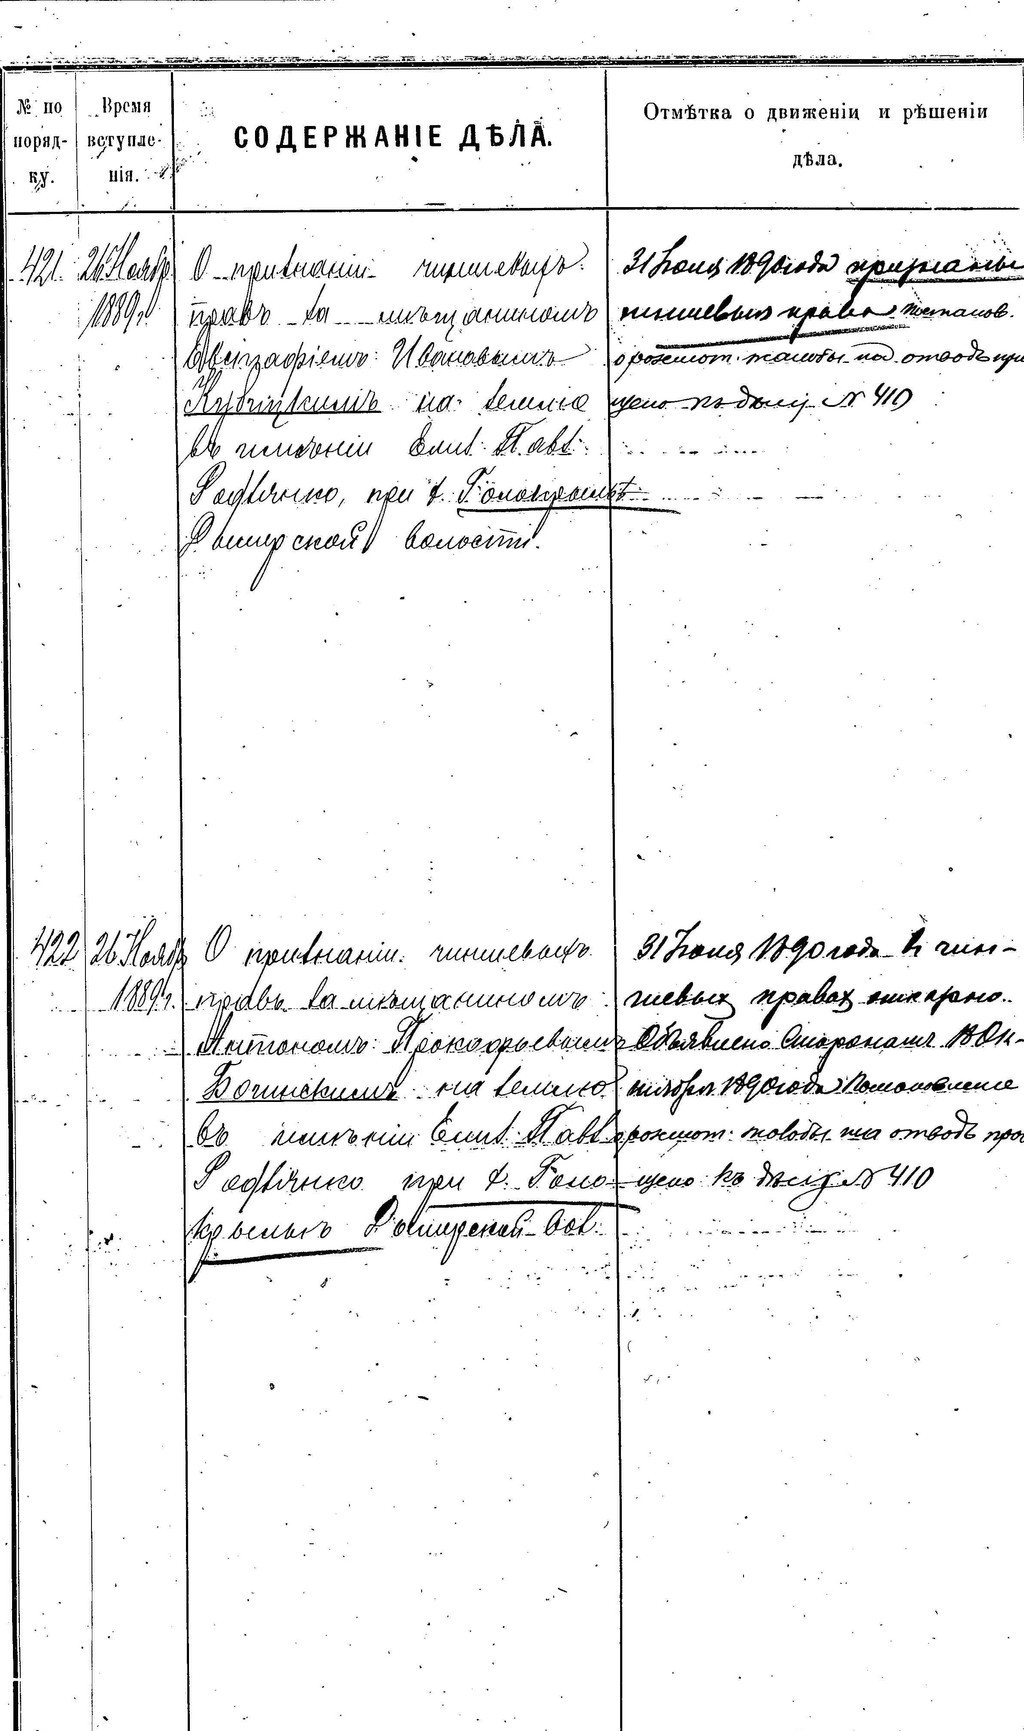 № по поряд- ку.
Время вступле- нія.
СОДЕРЖАНІЕ ДѢЛА.
Отмѣтка о движеніи и рѣшеніи
дѣла.
421.
26 Ноябр
1889 г.
О признаніи чиншевыхъ
правъ за мѣщаниномъ
Ивановымъ
на землю
въ имѣніи Емил. Павл.
при д. Голокрыльѣ
Дымерской волости.
31 Іюля 1890 года признаны
чиншевыя права Постанов.
о разсмот. жалобы на отводъ прі
щено къ дѣлу № 410
422
26 Ноябр
1889 г.
О признаніи чиншевыхъ
правъ за мѣщаниномъ
Антономъ Прокофьевымъ
на землю
въ имѣніи Емил. Павл.
при д. Голо-
крыльѣ Дымерской вол.
31 Іюля 1890 года въ чин-
шевыхъ правахъ отказано.
Объявлено Сторонамъ 18 Ок-
тября 1890 года Постановленіе
о разсмот. жалобы на отводъ прі
щено къ дѣлу № 410